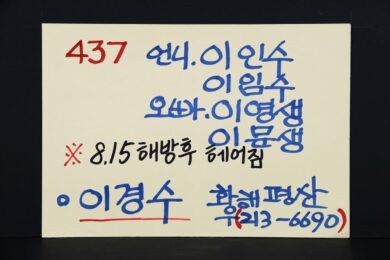 437 언니.이인수
이임수
오빠.이영생
이문생
※ 8.15해방후 헤어짐
이경수 황해평산
우(213-6690)